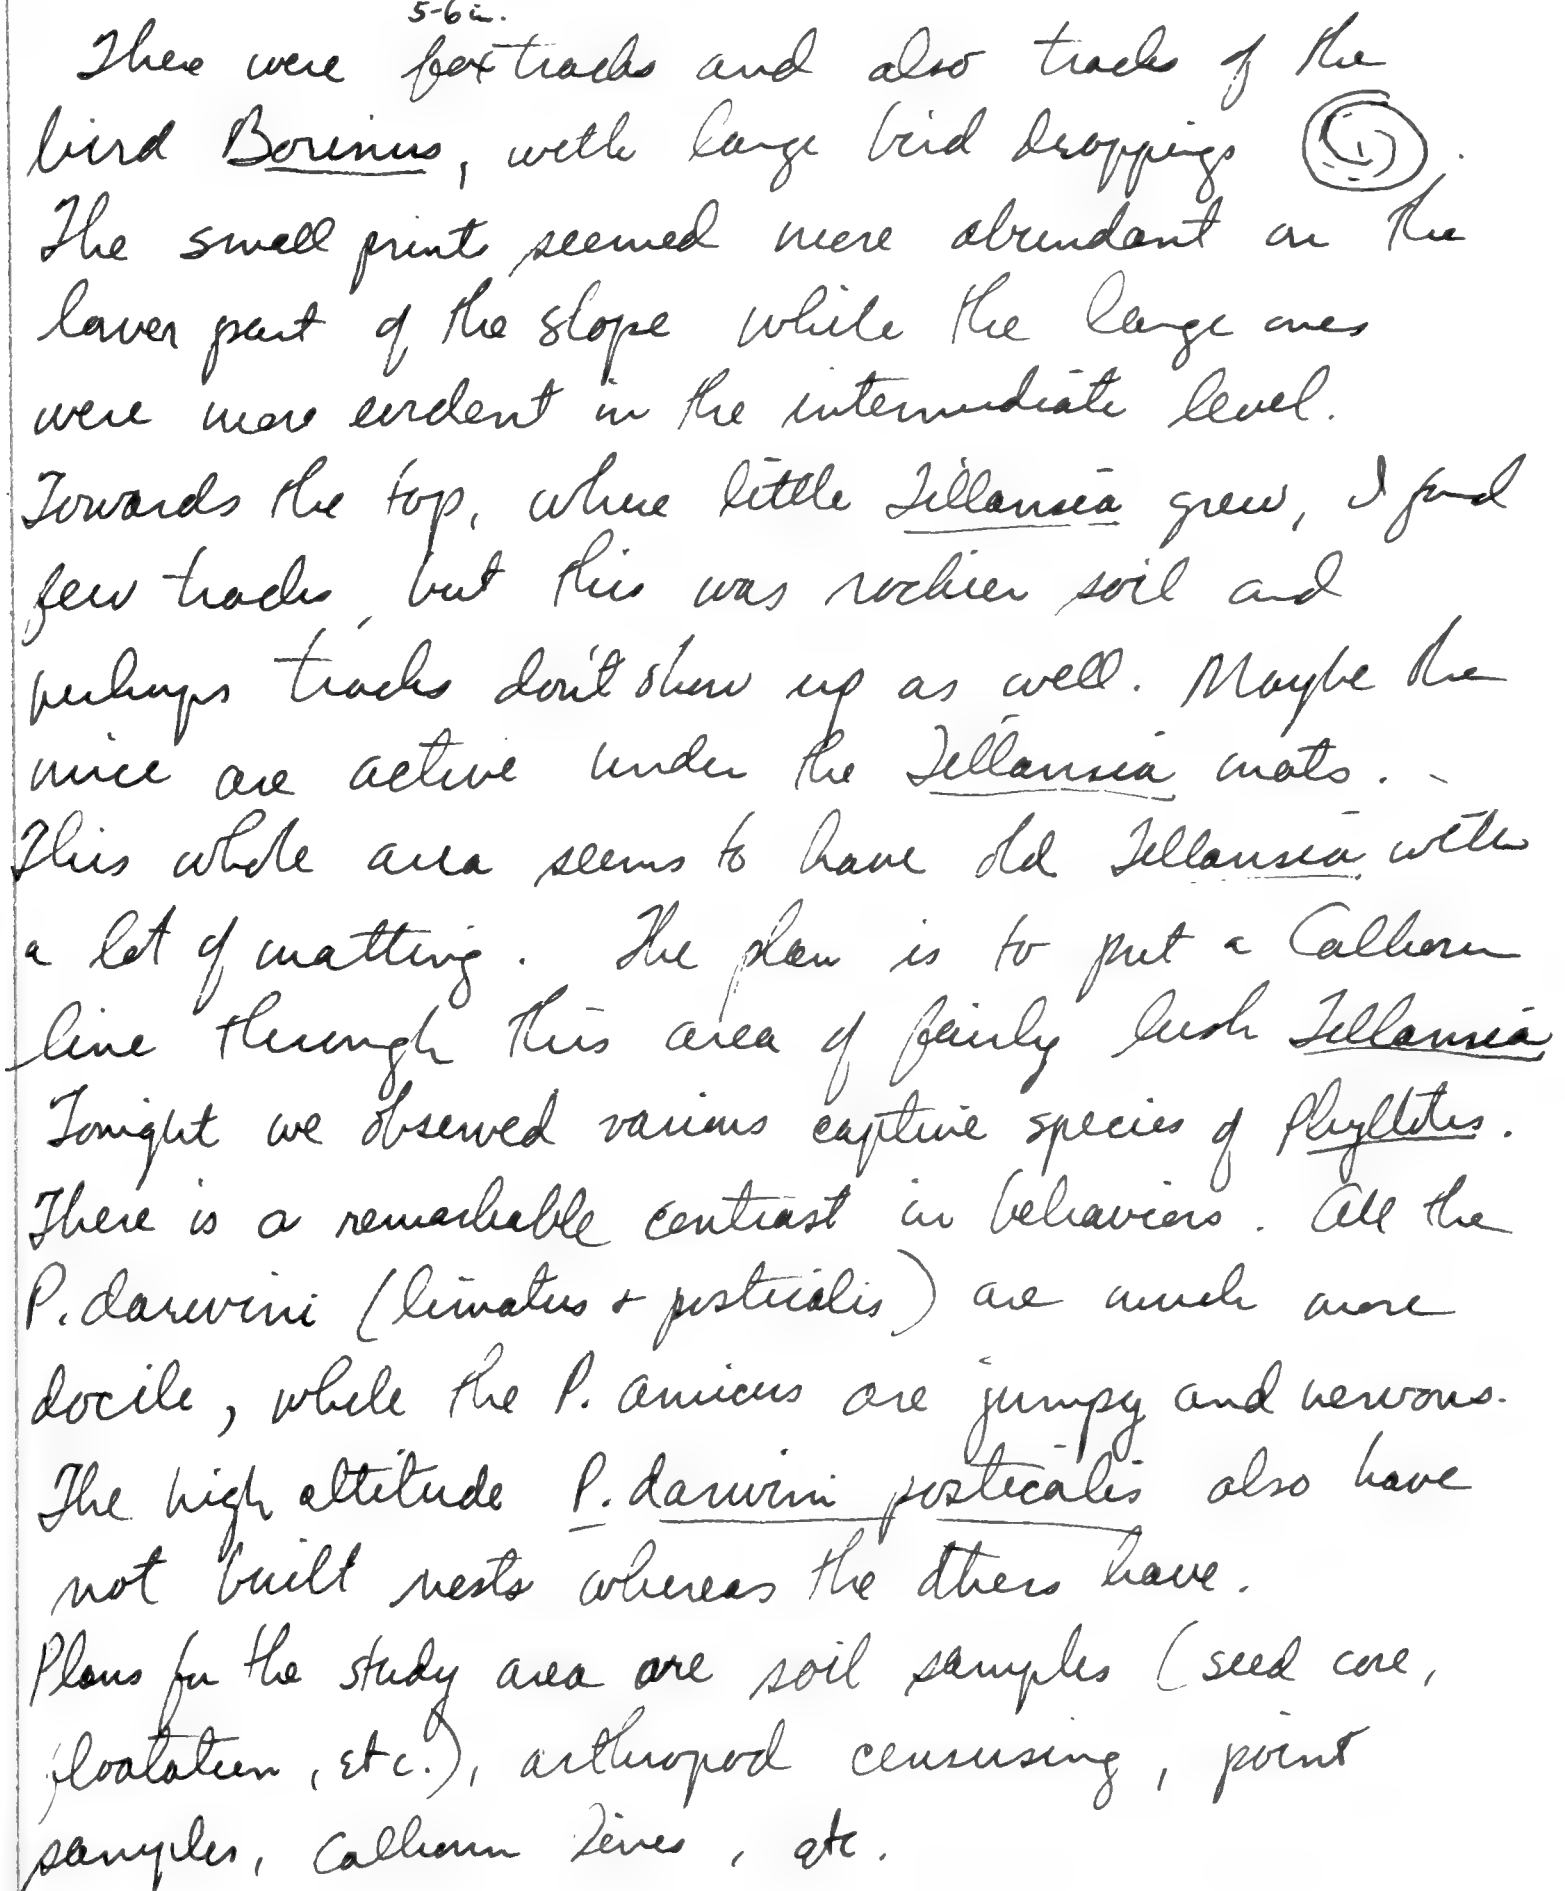 5-6 in.
There were fox tracks and also tracks of the
bird Borinus, with large bird droppings .
The small prints seemed more abundant on the
lower part of the slope while the large ones
were more evident in the intermediate level.
Towards the top, where little Tillansia grew, I found
few tracks, but this was rockier soil and
perhaps tracks don't show up as well. Maybe the
mice are active under the Tillansia mats.
This whole area seems to have old Tillansia with
a lot of matting. The plan is to put a Calhoun
line through this area of fairly lush Tillansia
Tonight we observed various captive species of Phyllotis.
There is a remarkable contrast in behaviors. All the
P. darwini (limatus + posticalis) are much more
docile, while the P. amicus are jumpy and nervous.
The high altitude P. darwini posticalis also have
not built nests whereas the others have.
Plans for the study area are soil samples (seed core,
floatation, etc.), arthropod censusing, point
samples, Calhoun lines, etc.